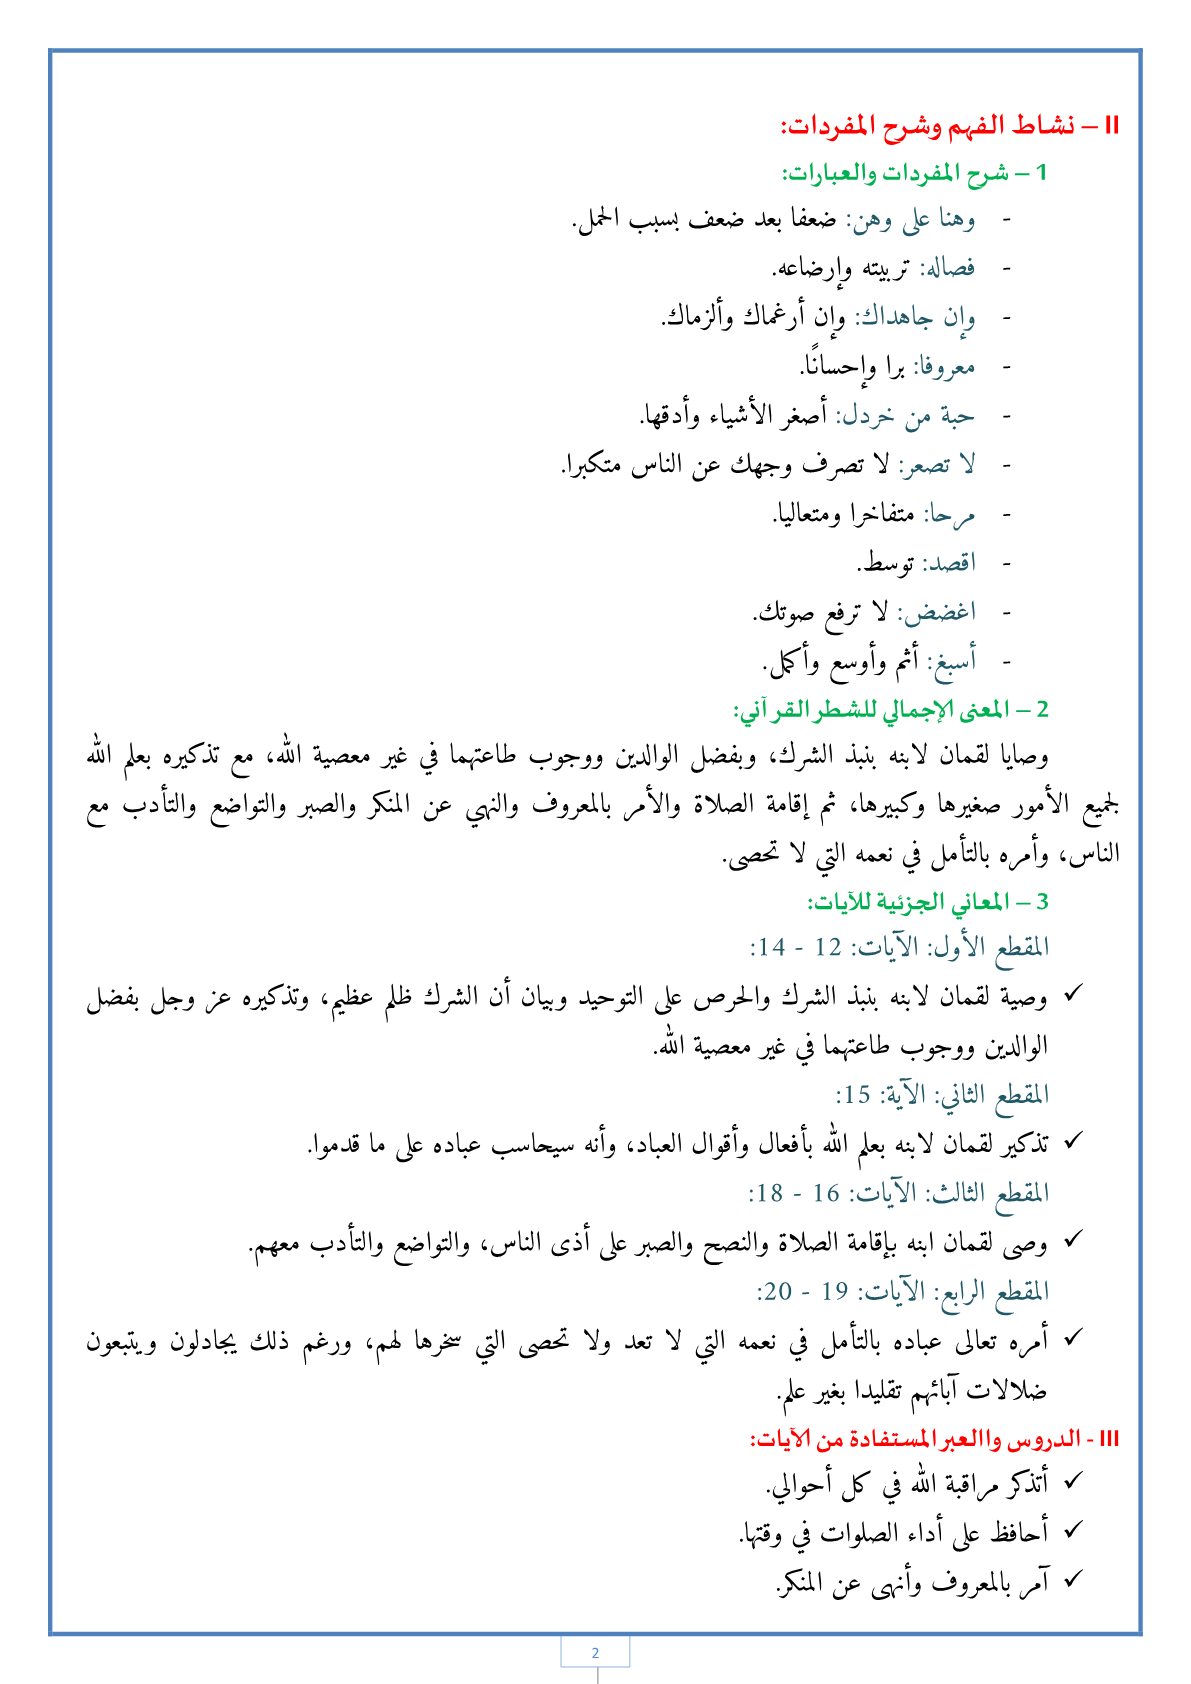 II – نشاط الفهم وشرح المفردات:
1 – شرح المفردات والعبارات:
- وهنا على وهن: ضعفا بعد ضعف بسبب الحمل.
- فصاله: تربيته وإرضاعه.
- وإن جاهداك: وإن أرغماك وألزماك.
- معروفا: برا وإحسانًا.
- حبة من خردل: أصغر الأشياء وأدقها.
- لا تصعر: لا تصرف وجهك عن الناس متكبرا.
- مرحا: متفاخرا ومتعاليا.
- اقصد: توسط.
- اغضض: لا ترفع صوتك.
- أسبغ: أثم وأوسع وأكمل.
2 – المعنى الإجمالي للشطر القرآني:
وصايا لقمان لابنه بنبذ الشرك، وبفضل الوالدين ووجوب طاعتهما في غير معصية الله، مع تذكيره بعلم الله
لجميع الأمور صغيرها وكبيرها، ثم إقامة الصلاة والأمر بالمعروف والنهي عن المنكر والصبر والتواضع والتأدب مع
الناس، وأمره بالتأمل في نعمه التي لا تحصى.
3 – المعاني الجزئية للآيات:
المقطع الأول: الآيات: 12 - 14:
✓ وصية لقمان لابنه بنبذ الشرك والحرص على التوحيد وبيان أن الشرك ظلم عظيم، وتذكيره عز وجل بفضل
الوالدين ووجوب طاعتهما في غير معصية الله.
المقطع الثاني: الآية: 15:
✓ تذكير لقمان لابنه بعلم الله بأفعال وأقوال العباد، وأنه سيحاسب عباده على ما قدموا.
المقطع الثالث: الآيات: 16 - 18:
✓ وصى لقمان ابنه بإقامة الصلاة والنصح والصبر على أذى الناس، والتواضع والتأدب معهم.
المقطع الرابع: الآيات: 19 - 20:
✓ أمره تعالى عباده بالتأمل في نعمه التي لا تعد ولا تحصى التي سخرها لهم، ورغم ذلك يجادلون ويتبعون
ضلالات آبائهم تقليدا بغير علم.
III - الدروس واالعبر المستفادة من الآيات:
✓ أتذكر مراقبة الله في كل أحوالي.
✓ أحافظ على أداء الصلوات في وقتها.
✓ آمر بالمعروف وأنهى عن المنكر.
2